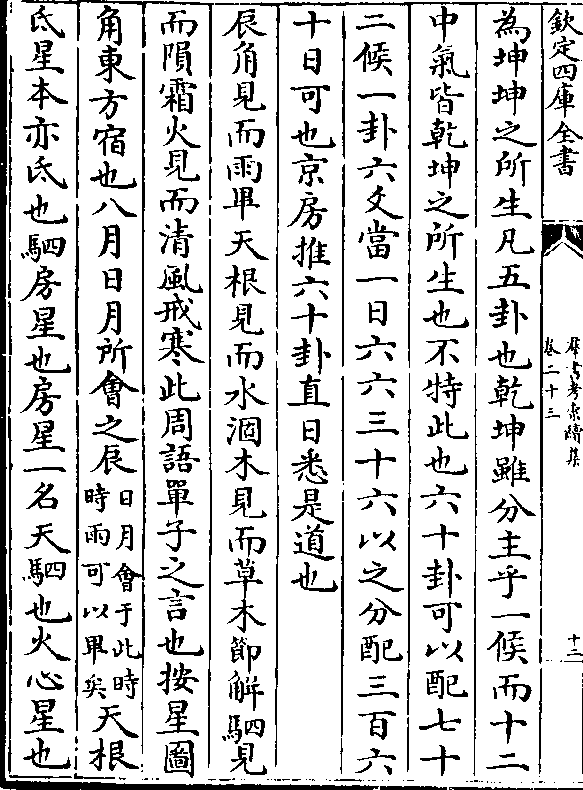 欽定四庫全書
羣書考索續集
卷二十三
十二
為坤坤之所生凡五卦也乾坤雖分主乎一候而十二
中氣皆乾坤之所生也不特此也六十卦可以配七十
二候一卦六爻當一日六六三十六以之分配三百六
十日可也京房推六十卦直日悉是道也
辰角見而雨畢天根見而水涸木見而草木節解駟見
而隕霜火見而清風戒寒此周語單子之言也按星圖
角東方宿也八月日月所會之辰日月會于此時時雨可以畢矣天根
氐星本亦氐也駟房星也房星一名天駟也火心星也